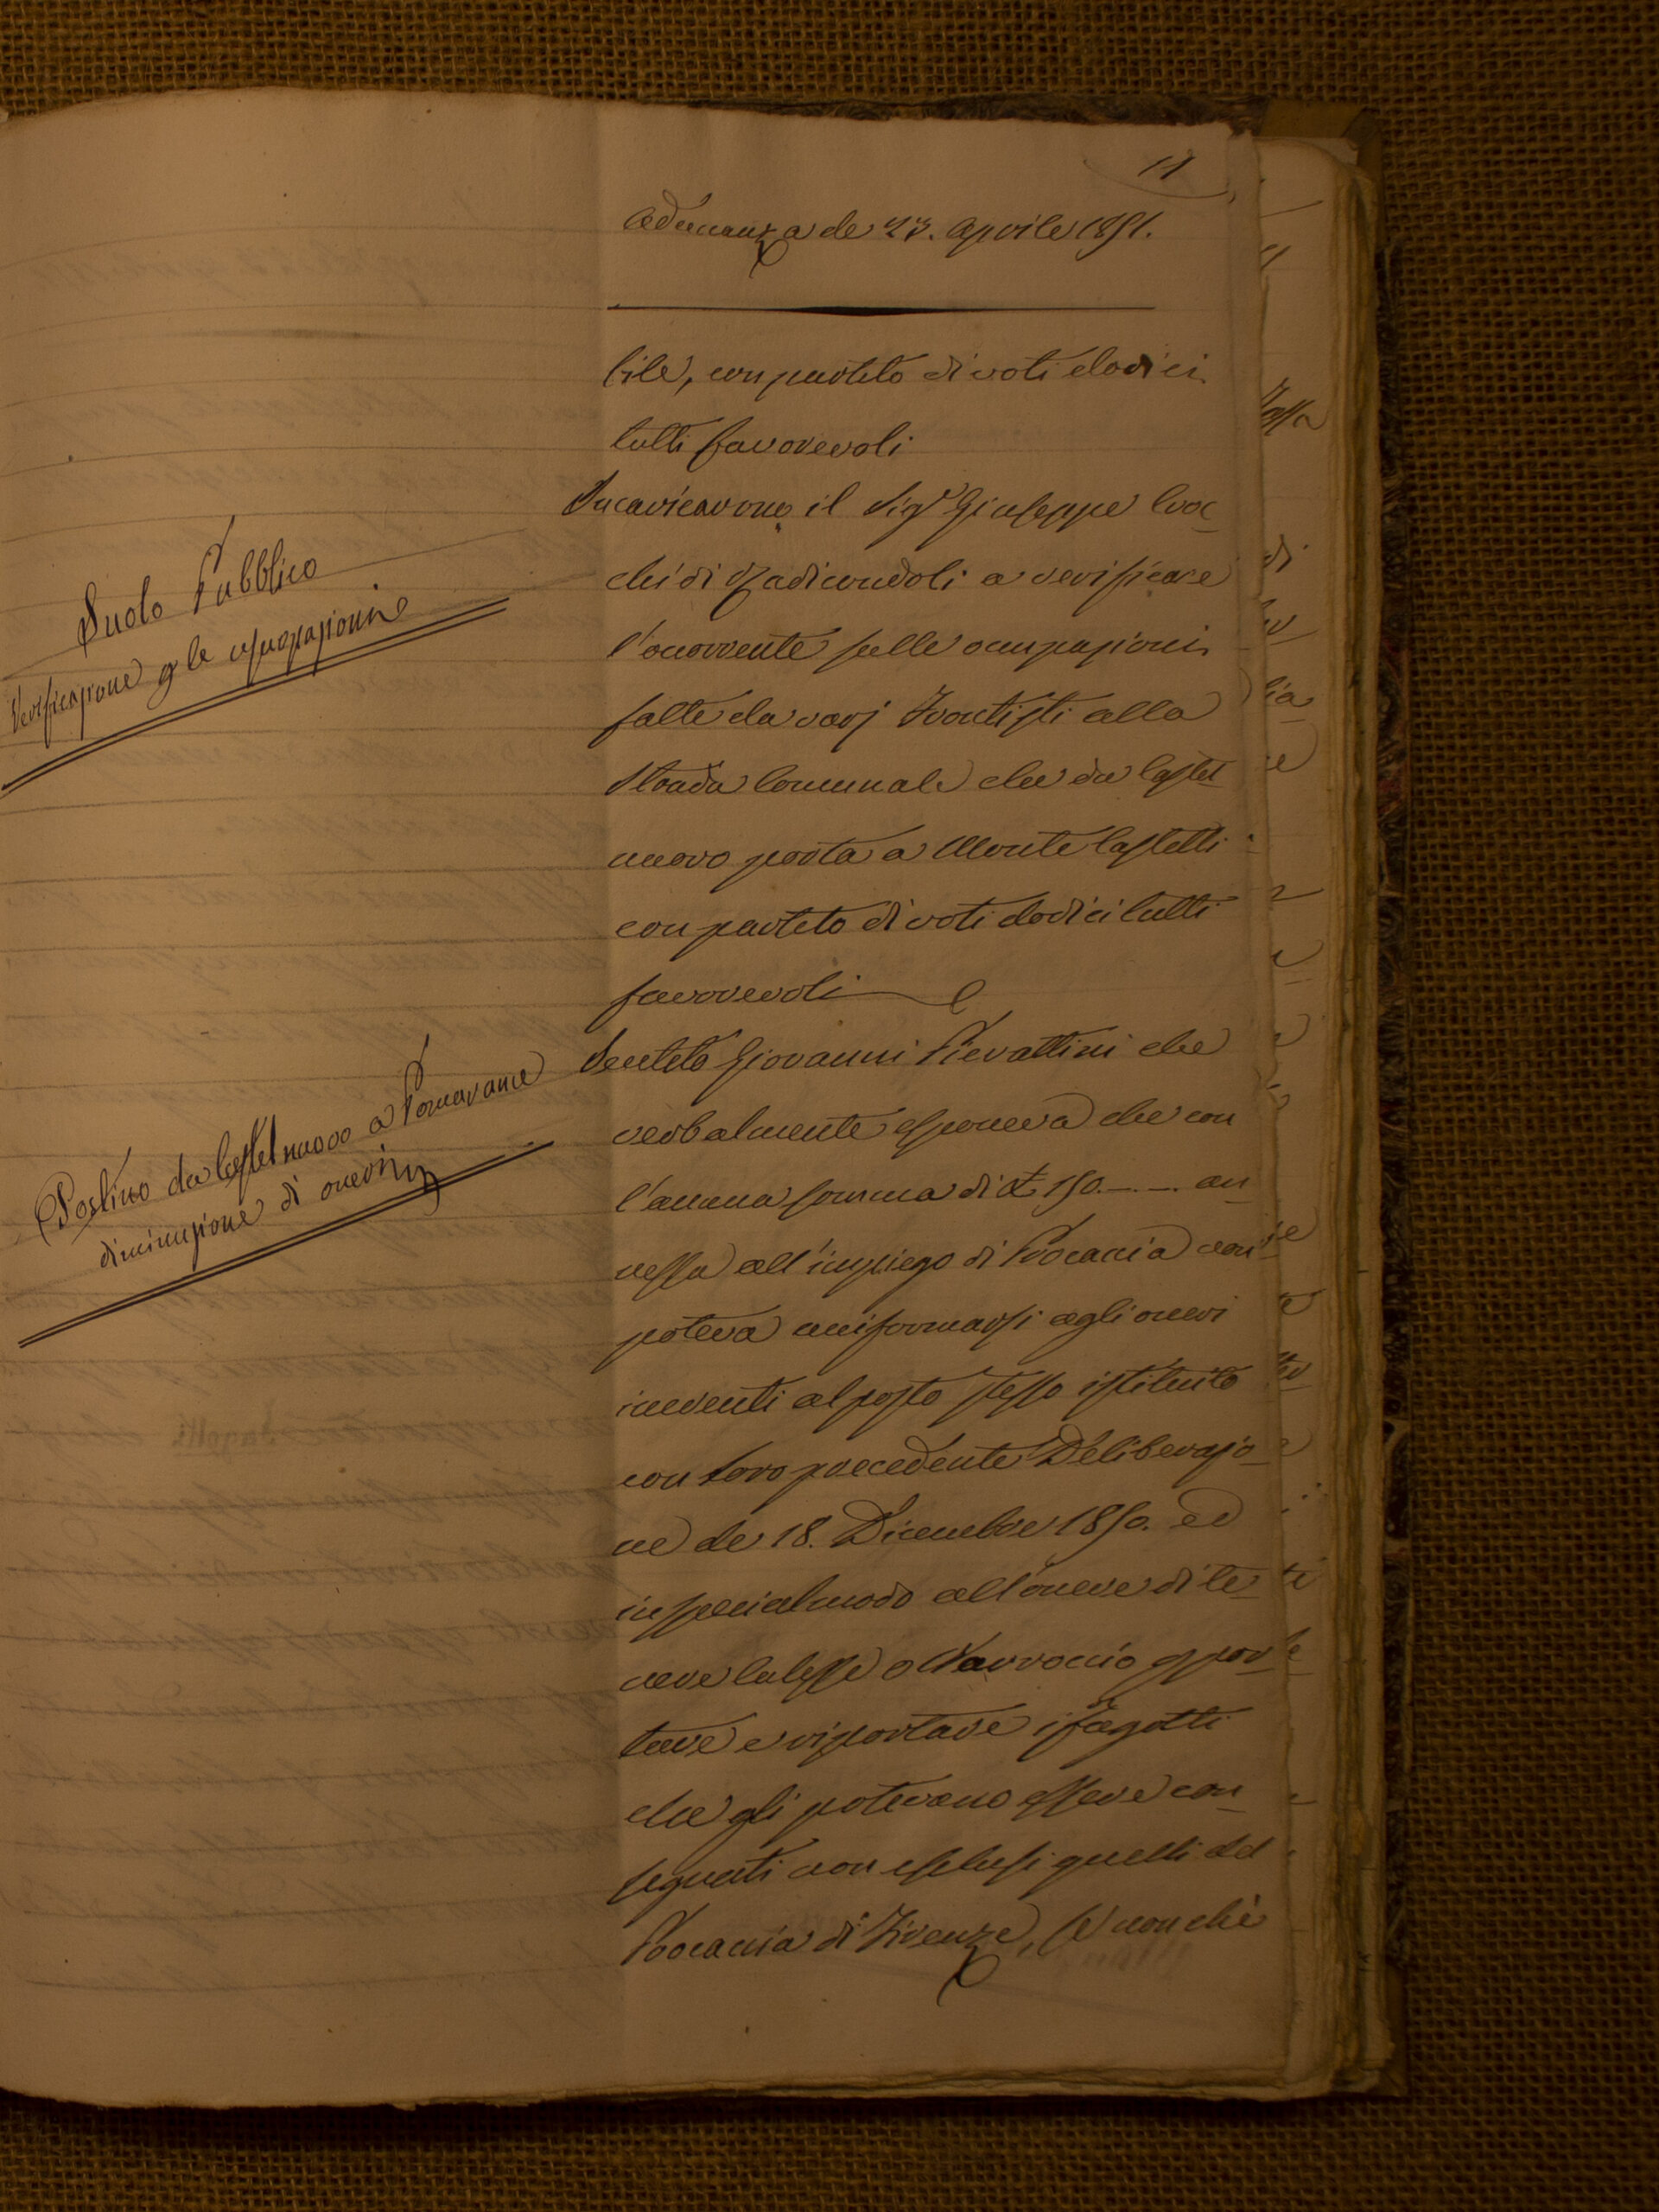 11
Adunanza de 23. Aprile 1851.
bile, con partito di voti dodici
tutti favorevoli
Suolo Pubblico
Verificazione p le usurpazioni
Incaricarono il Sigr Giuseppe Croc
chi di Radicondoli a verificare
l'occorrente sulle occupazioni
fatte da varj Frontisti alla
Strada Comunale che da Castel
nuovo porta a Monte Castelli
con partito di voti dodici tutti
favorevoli
Postino da Castelnuovo a Pomarance
diminuzione di oneri
Sentito Giovanni Pierattini che
verbalmente esponeva che con
l'annua somma di £ 150.—.—. an
nessa all'impiego di Procaccia non
poteva uniformarsi agli oneri
inerenti al posto stesso istituito
con Loro precedente Deliberazio
ne de 18. Dicembre 1850. ed
in special modo all'onere di te
nere Calesse o Barroccio p por
tare e riportare i fagotti
che gli potevano essere con
segnati non esclusi quelli del
Procaccia di Firenze, se non chè